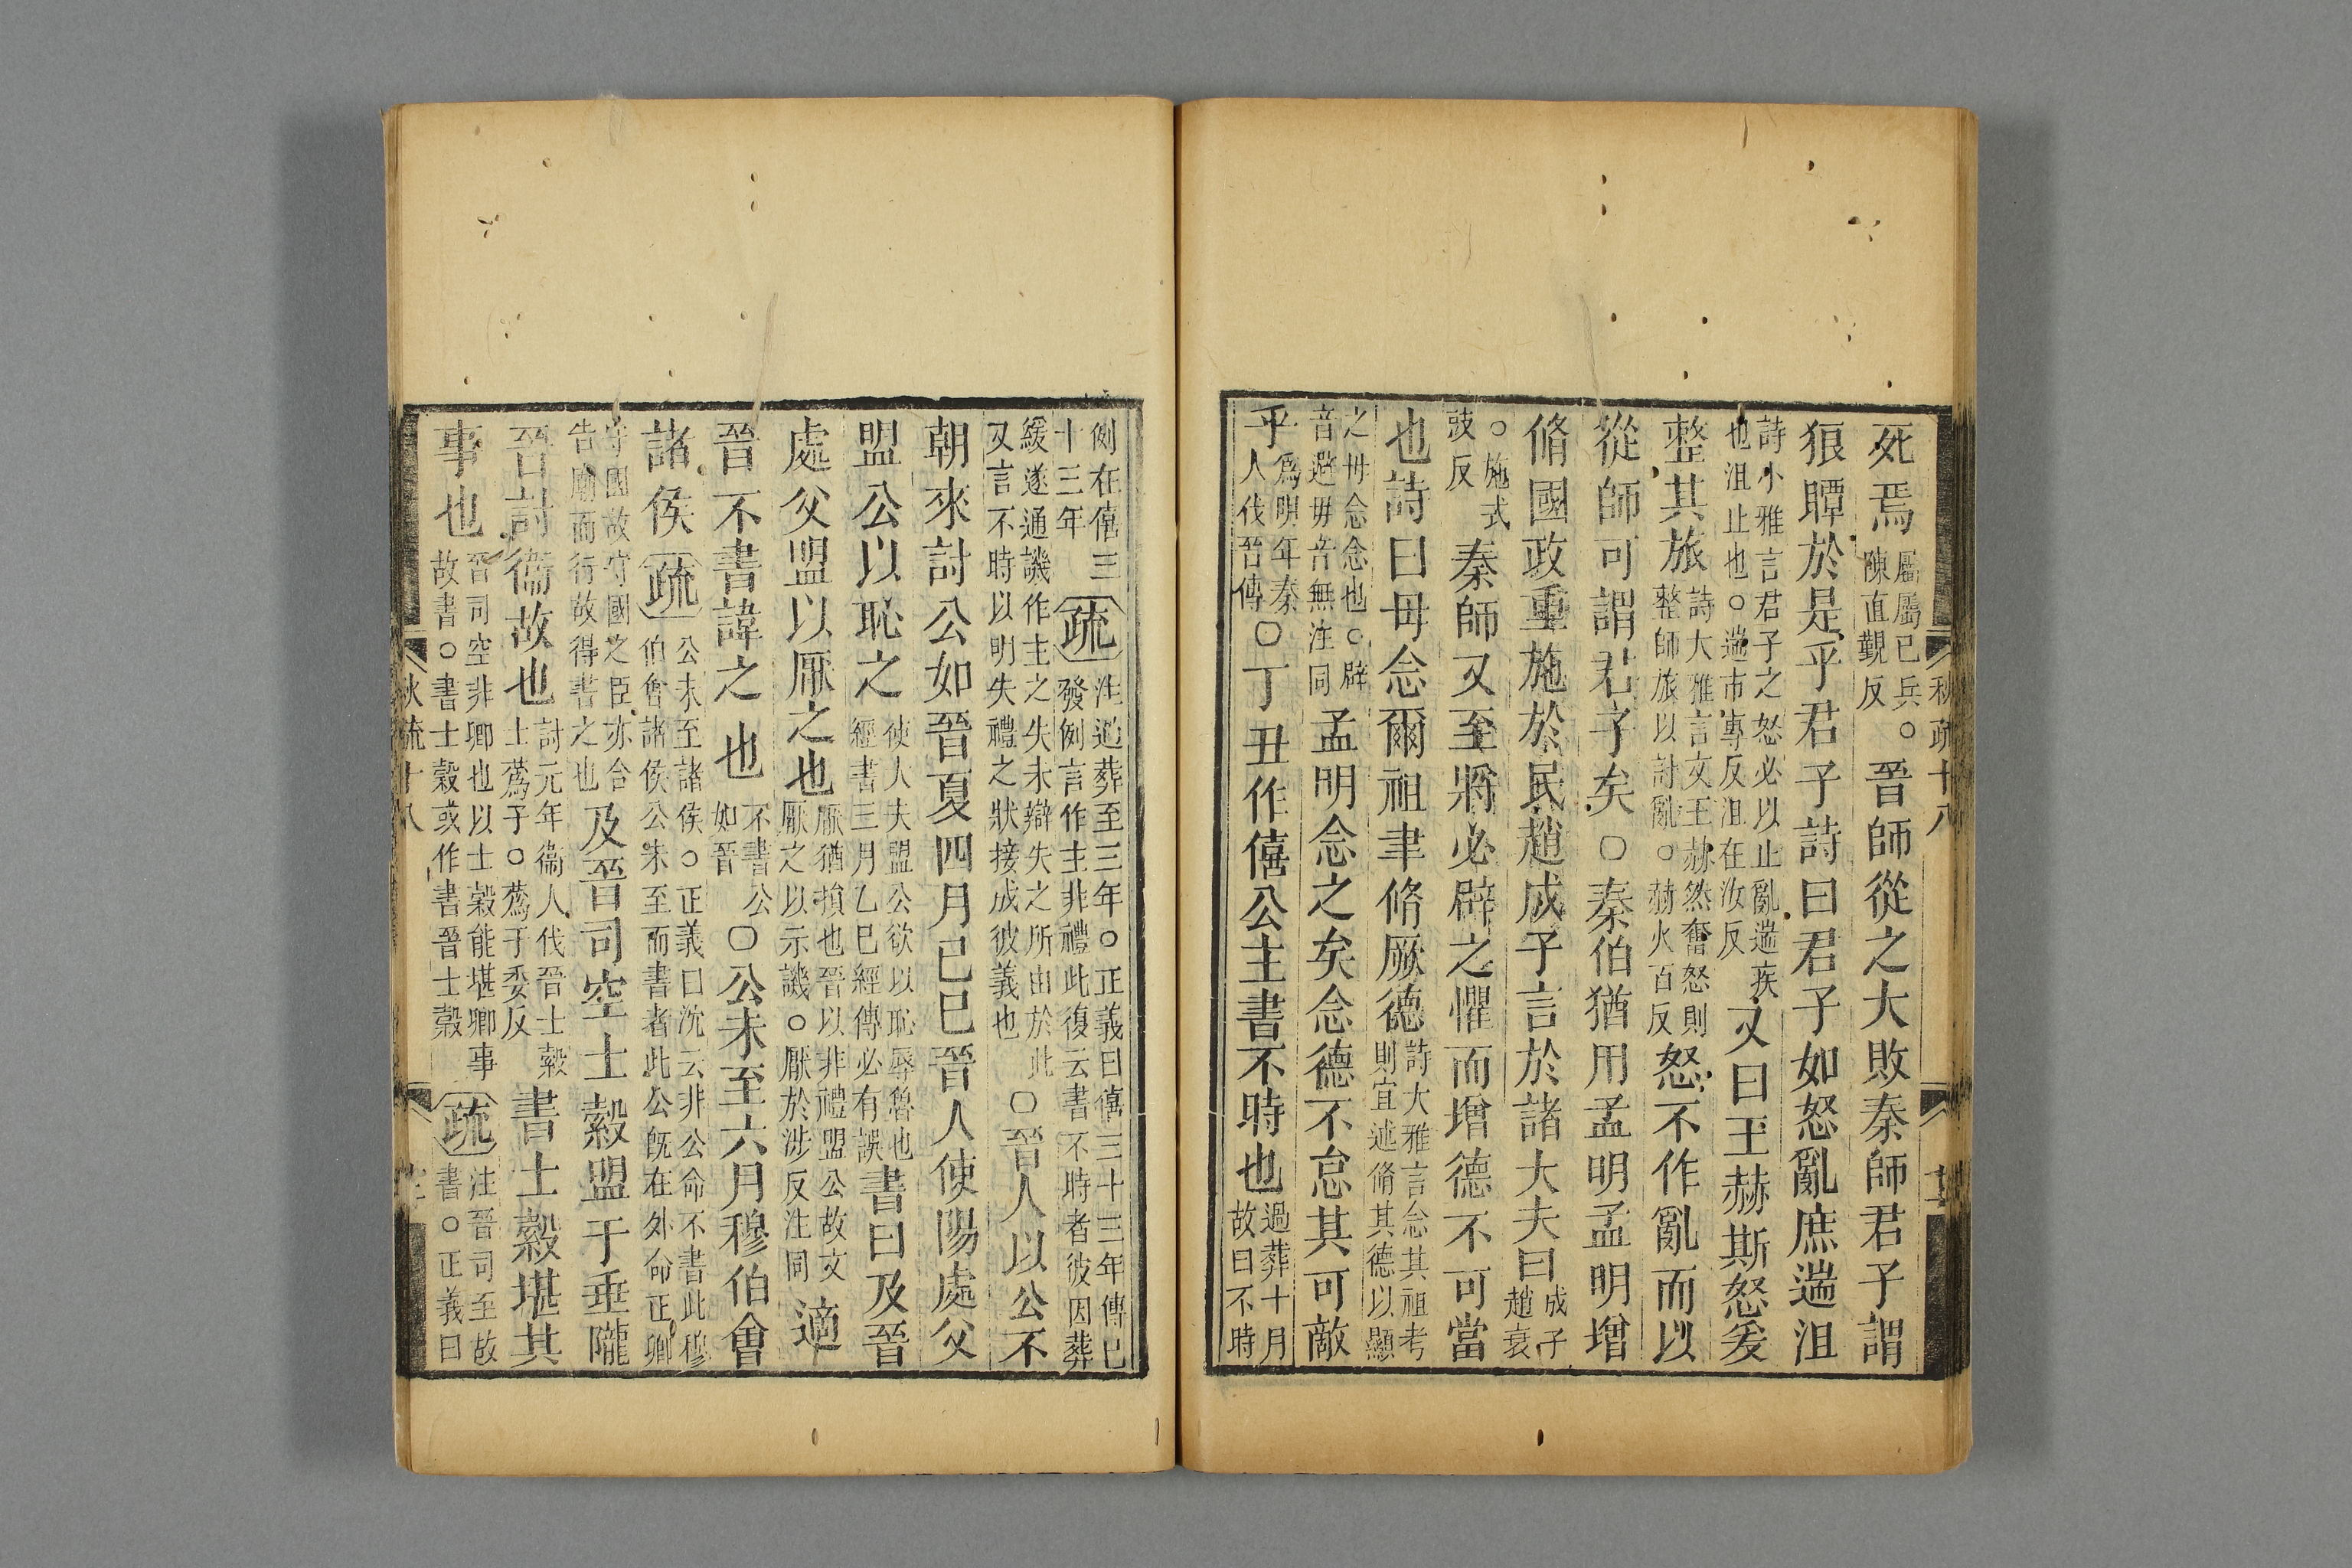 秋疏十八
死焉屬屬已兵○陳直覲反晉師從之大敗秦師君子謂
狼瞫於是乎君子詩曰君子如怒亂庶遄沮
詩小雅言君子之怒必以止亂遄疾也沮止也○遄市專反沮在汝反又曰王赫斯怒爰
整其旅詩大雅言文王赫然奮怒則整師旅以討亂○赫火百反怒不作亂而以
從師可謂君子矣○秦伯猶用孟明孟明增
脩國政重施於民趙成子言於諸大夫曰成子趙衰
○施式豉反秦師又至將必辟之懼而增德不可當
也詩曰毋念爾祖聿脩厥德詩大雅言念其祖考則宜述脩其德以顯
之毋念念也○辟音避毋音無注同孟明念之矣念德不怠其可敵
乎爲明年秦人伐晉傳○丁丑作僖公主書不時也過葬十月故曰不時
例在僖三十三年疏注過葬至三年○正義曰僖三十三年傳已發例言作主非禮此復云書不時者彼因葬
緩遂通譏作主之失未辯失之所由於此又言不時以明失禮之狀接成彼義也○晉人以公不
朝來討公如晉夏四月己巳晉人使陽處父
盟公以恥之使大夫盟公欲以恥辱魯也經書三月乙巳經傳必有誤書曰及晉
處父盟以厭之也厭猶損也晉以非禮盟公故文厭之以示譏○厭於涉反注同適
晉不書諱之也不書公如晉○公未至六月穆伯會
諸侯疏公未至諸侯○正義曰沈云非公命不書此穆伯會諸侯公未至而書者此公旣在外命正卿
守國故守國之臣亦合告廟而行故得書之也及晉司空士縠盟于垂隴
晉討衞故也討元年衞人伐晉士縠士蔿子○蔿于委反書士縠堪其
事也晉司空非卿也以士縠能堪卿事故書○書士縠或作書晉士縠疏注晉司至故書○正義曰
秋疏十八